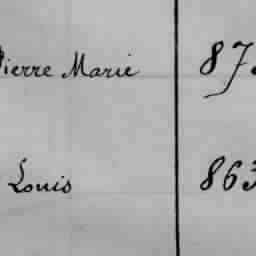 Pierre Marie 873
Louis 863